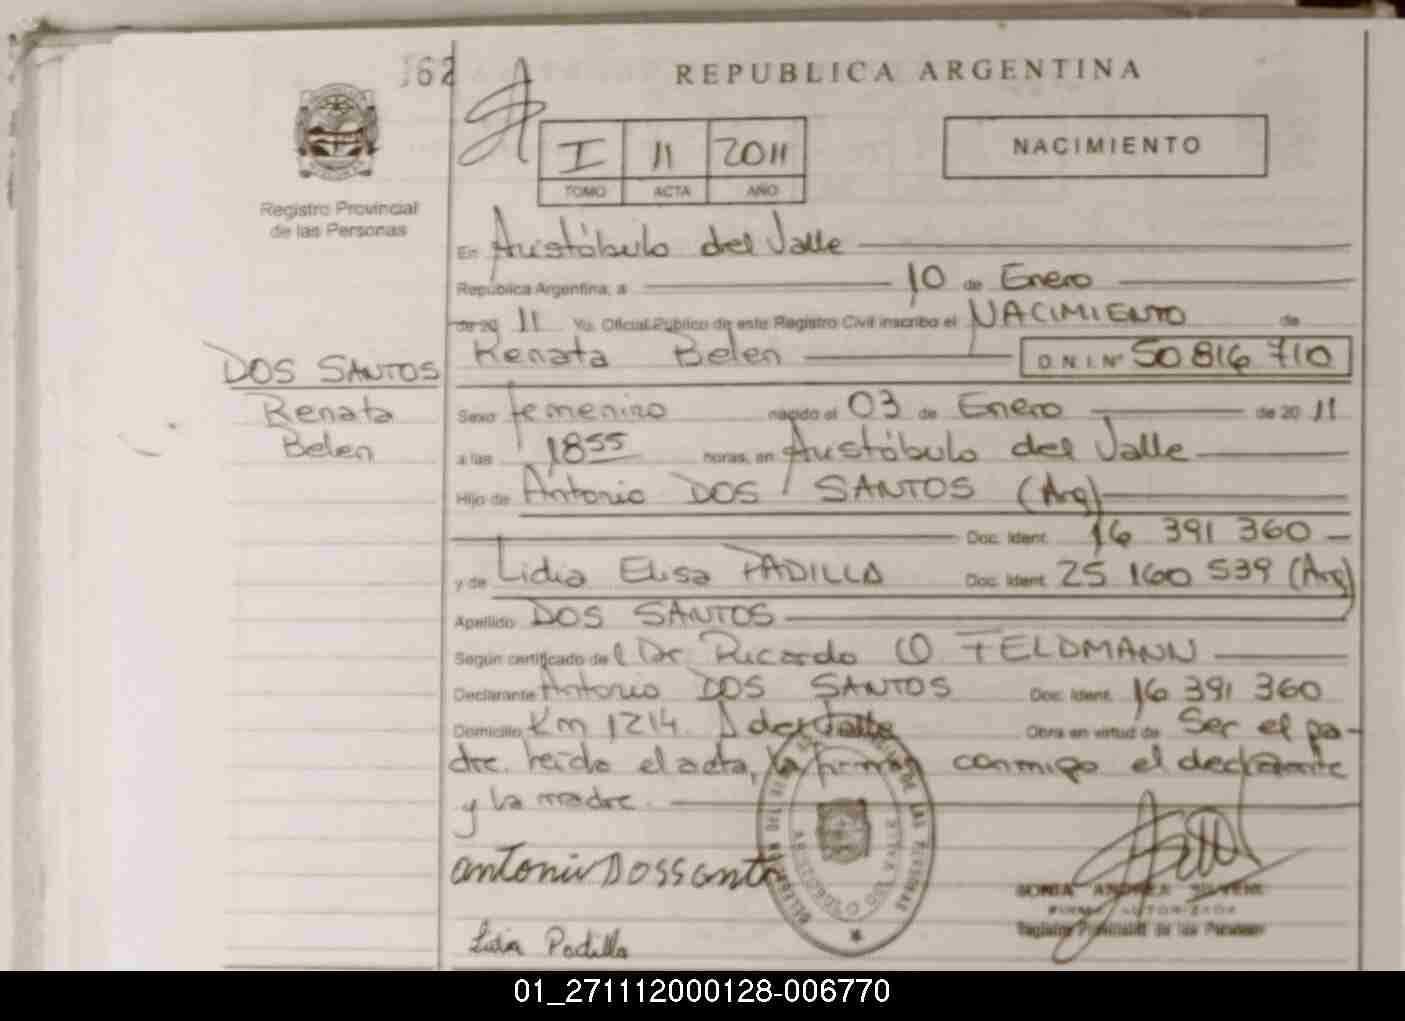 62
REPUBLICA ARGENTINA
I 11 2011
TOMO ACTA AÑO
NACIMIENTO
Registro Provincial
de las Personas
En Aristóbulo del Valle
República Argentina, a 10 de Enero
de 20 11 Yo, Oficial Público de este Registro Civil inscribo el NACIMIENTO de
Renata Belen D.N.I. Nº 50 816 710
DOS SANTOS
Renata
Belen
Sexo femenino nacido el 03 de Enero de 20 11
a las 18 55 horas, en Aristóbulo del Valle
Hijo de Antonio DOS SANTOS (Arg)
Doc. Ident. 16 391 360
y de Lidia Elisa PADILLA Doc. Ident. 25 160 539 (Arg)
Apellido DOS SANTOS
Según certificado del Dr. Ricardo O FELDMANN
Declarante Antonio DOS SANTOS Doc. Ident. 16 391 360
Domicilio Km 1214. A del Valle Obra en virtud de Ser el pa-
dre. leido el acta, la firman conmigo el declarante
y la madre.
Antonio DosSanto
Lidia Padilla
ARISTOBULO DEL VALLE
SONIA ANDREA
FIRMA AUTORIZADA
Registro Provincial de las Personas
01_271112000128-006770